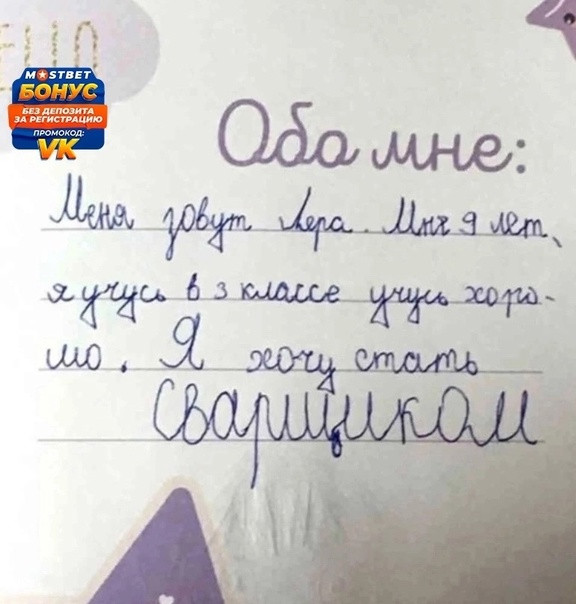 МОSТВЕТ
БОНУС
БЕЗ ДЕПОЗИТА
ЗА РЕГИСТРАЦИЮ
ПРОМОКОД:
VK
Обо мне:
Меня зовут Лера. Мне 9 лет,
я учусь в 3 классе учусь хоро-
шо. Я хочу стать
Сварщиком